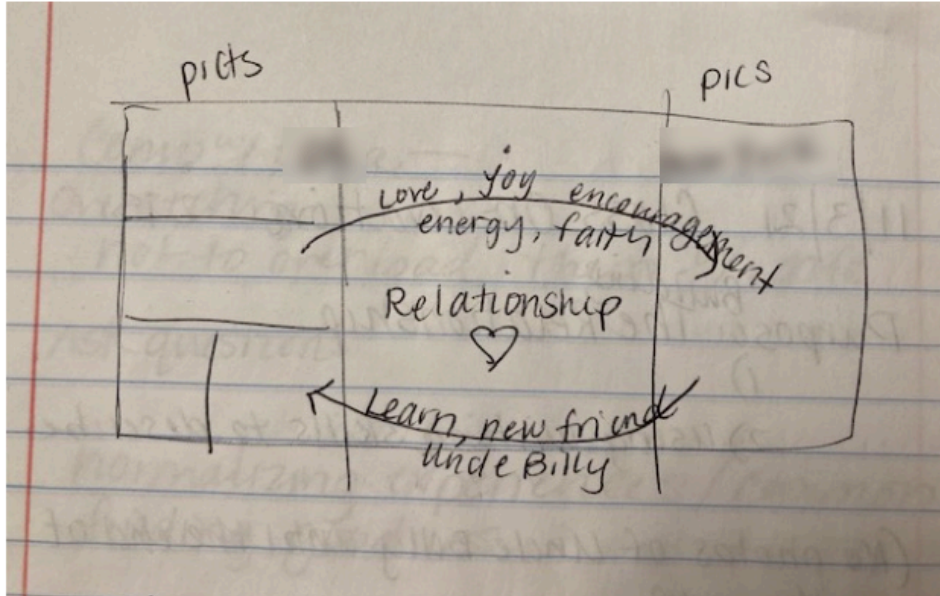 picts
pics
Love, joy encouragement
energy, faith
Relationship
Learn, new friend
Uncle Billy